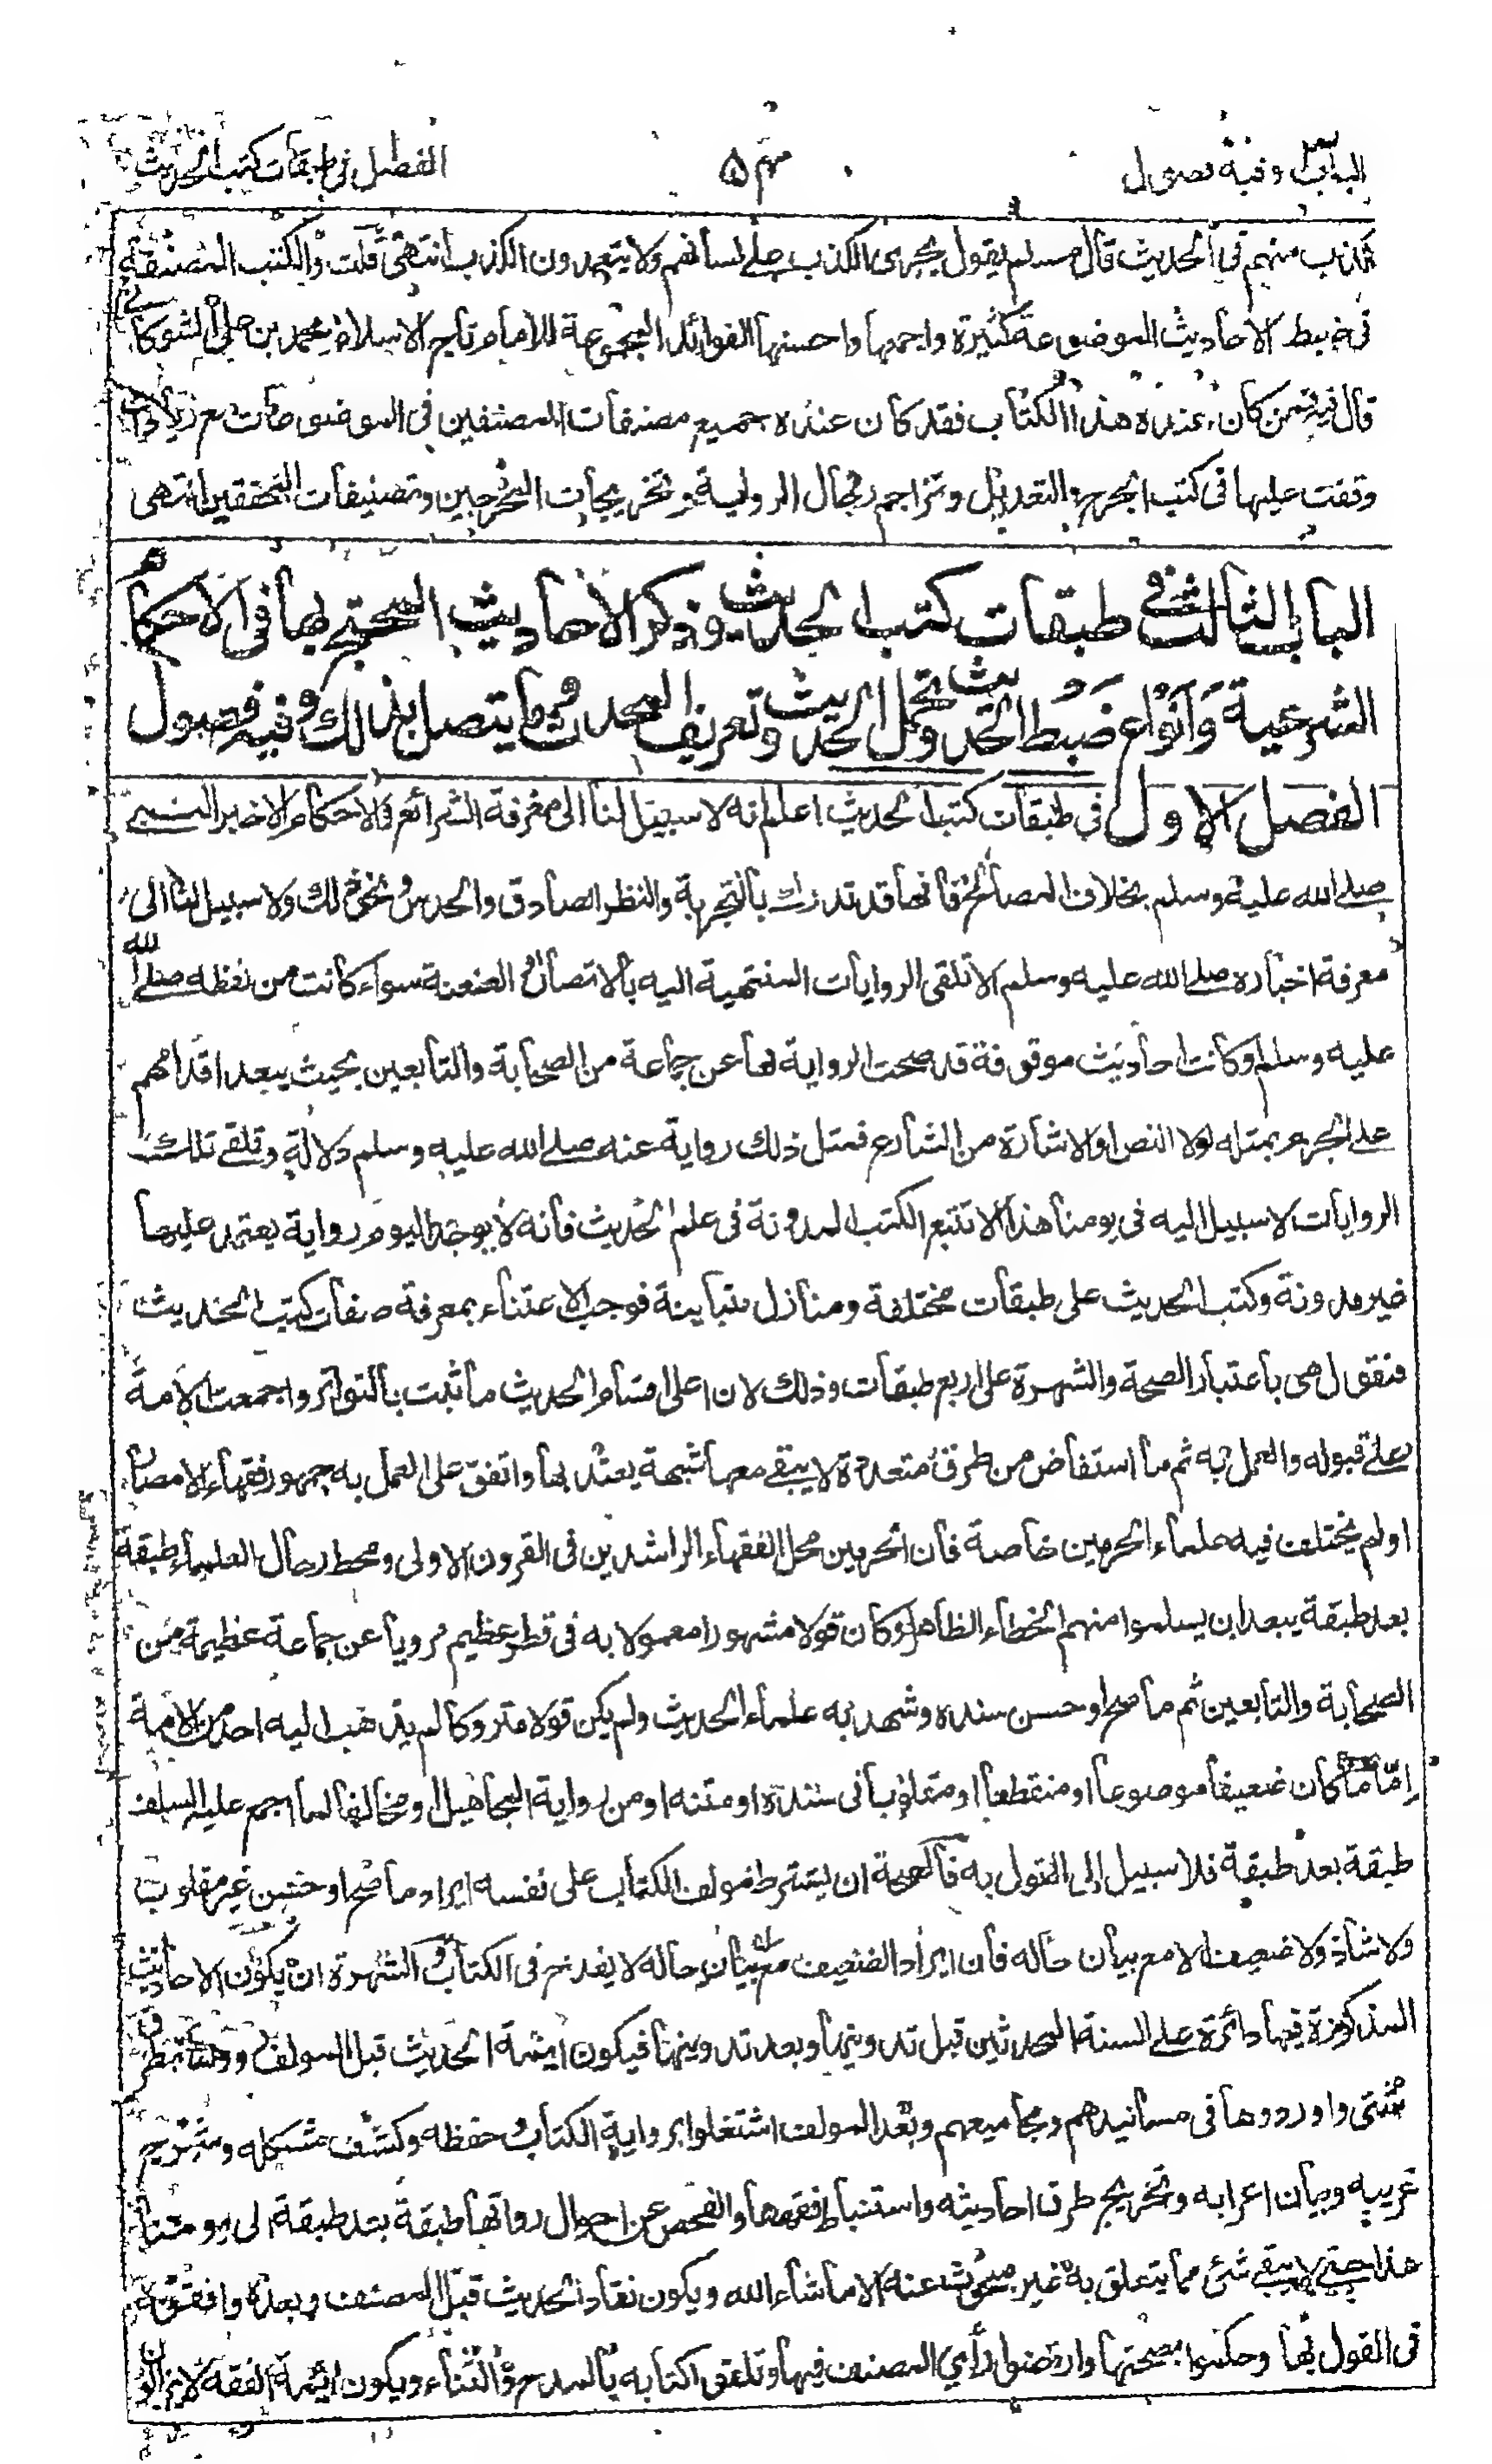 الباب وفيه فصول ٥٤ الفصل في طبقات كتب الحديث
كذب منهم في الحديث قال مسلم يقول يجرى الكذب على لسانهم ولا يتعمدون الكذب انتهى قلت والكتب المصنفة
في ضبط الاحاديث الموضوعة كثيرة واجمعها واحسنها الفوائد المجموعة للامام تاج الاسلام محمد بن علي الشوكاني
قال فيه فمن كان عنده هذا الكتاب فقد كان عنده جميع مصنفات المصنفين في الموضوعات مع زيادات
وقفت عليها في كتب الجرح والتعديل وتراجم رجال الرواية وتخريجات المخرجين وتصنيفات المحققين انتهى
الباب الثالث في طبقات كتب الحديث وذكر الاحاديث المحتج بها في الاحكام
الشرعية وَاَنْوَاع ضَبْط الحديث وتحمل الحديث وتعريف المحدث وما يتصل بذلك وفيه فصول
الفصل الاول في طبقات كتب الحديث اعلم انه لا سبيل لنا الى معرفة الشرائع والاحكام الا خبر النبي
صلے الله عليه وسلم بخلاف المصالح فانها قد تدرك بالتجربة والنظر الصادق والحدس ونحو ذلك ولا سبيل لنا الى
معرفة اخباره صلے الله عليه وسلم الا تلقى الروايات المنتهية اليه بالاتصال والعنعنة سواء كانت من لفظه صلے الله
عليه وسلم او كانت احاديث موقوفة قد صحت الرواية بها عن جماعة من الصحابة والتابعين بحيث يبعد اقدامهم
على الجزم بمثله لولا النص او الاشارة من الشارع فمثل ذلك رواية عنه صلے الله عليه وسلم دلالة وتلقے تلك
الروايات لا سبيل اليه في يومنا هذا الا تتبع الكتب المدونة في علم الحديث فانه لا يوجد اليوم رواية يعتمد عليها
غير مدونة وكتب الحديث على طبقات مختلفة ومنازل متباينة فوجب الاعتناء بمعرفة طبقات كتب الحديث
فنقول هى باعتبار الصحة والشهرة على اربع طبقات وذلك لان اعلى اقسام الحديث ما ثبت بالتواتر واجمعت الامة
علے قبوله والعمل به ثم ما استفاض من طرق متعددة لا يبقے معها شبهة يعتد بها واتفق على العمل به جمهور فقهاء الامصار
او لم يختلف فيه علماء الحرمين خاصة فان الحرمين محل الفقهاء الراشدين في القرون الاولى ومحط رحال العلماء طبقة
بعد طبقة يبعد ان يسلموا منهم الخطاء الظاهر او كان قولا مشهورا معمولا به في قطر عظيم مرويا عن جماعة عظيمة من
الصحابة والتابعين ثم ما صح او حسن سنده وشهد به علماء الحديث ولم يكن قولا متروكا لم يذهب اليه احد من الامة
اِمّا ما كان ضعيفا موضوعا او منقطعا او مقلوبا في سنده او متنه او من رواية المجاهيل او مخالفا لما اجمع عليه السلف
طبقة بعد طبقة فلا سبيل الى القول به فالصحة ان يشترط مولف الكتاب على نفسه ايراد ما صح او حسن غير مقلوب
ولا شاذ ولا ضعيف الا مع بيان حاله فان ايراد الضعيف مع بيان حاله لا يقدح في الكتاب والشهرة ان يكون الاحاديث
المذكورة فيها دائرة علے السنة المحدثين قبل تدوينها وبعد تدوينها فيكون ايئمة الحديث قبل المولف رووها بطرق
شتى واوردوها في مسانيدهم ومجاميعهم وبعد المولف اشتغلوا برواية الكتاب وحفظه وكشف مشكله وشرح
غريبه وبيان اعرابه وتخريج طرق احاديثه واستنباط فقهها والفحص عن احوال رواتها طبقة بعد طبقة الى يومنا
هذا حتى لا يبقے شئ مما يتعلق به غير مبحوث عنه الا ما شاء الله ويكون نقاد الحديث قبل المصنف وبعده وافقوه
في القول بها وحكموا بصحتها وارتضوا رأي المصنف فيها وتلقى اكتابه بالمدح والثناء ويكون ائيمة الفقه لا يزالون